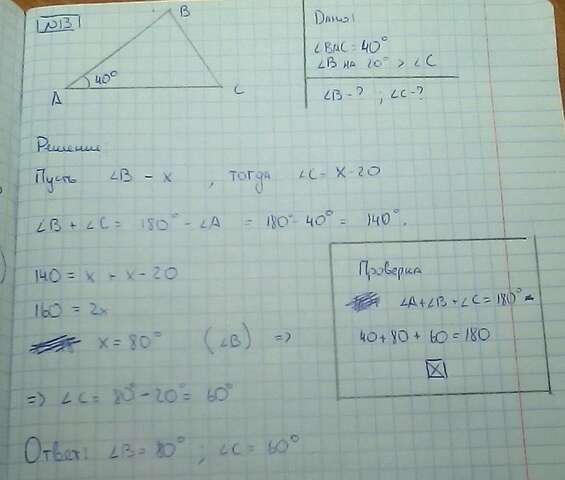 №13
B
40°
A
C
Дано:
∠BAC = 40°
∠B на 20° > ∠C
∠B - ? ; ∠C - ?
Решение
Пусть ∠B - x , тогда ∠C = x - 20
∠B + ∠C = 180° - ∠A = 180° - 40° = 140°.
140 = x + x - 20
160 = 2x
x = 80° (∠B) =>
=> ∠C = 80° - 20° = 60°
Ответ: ∠B = 80° ; ∠C = 60°
Проверка
∠A + ∠B + ∠C = 180°
40 + 80 + 60 = 180